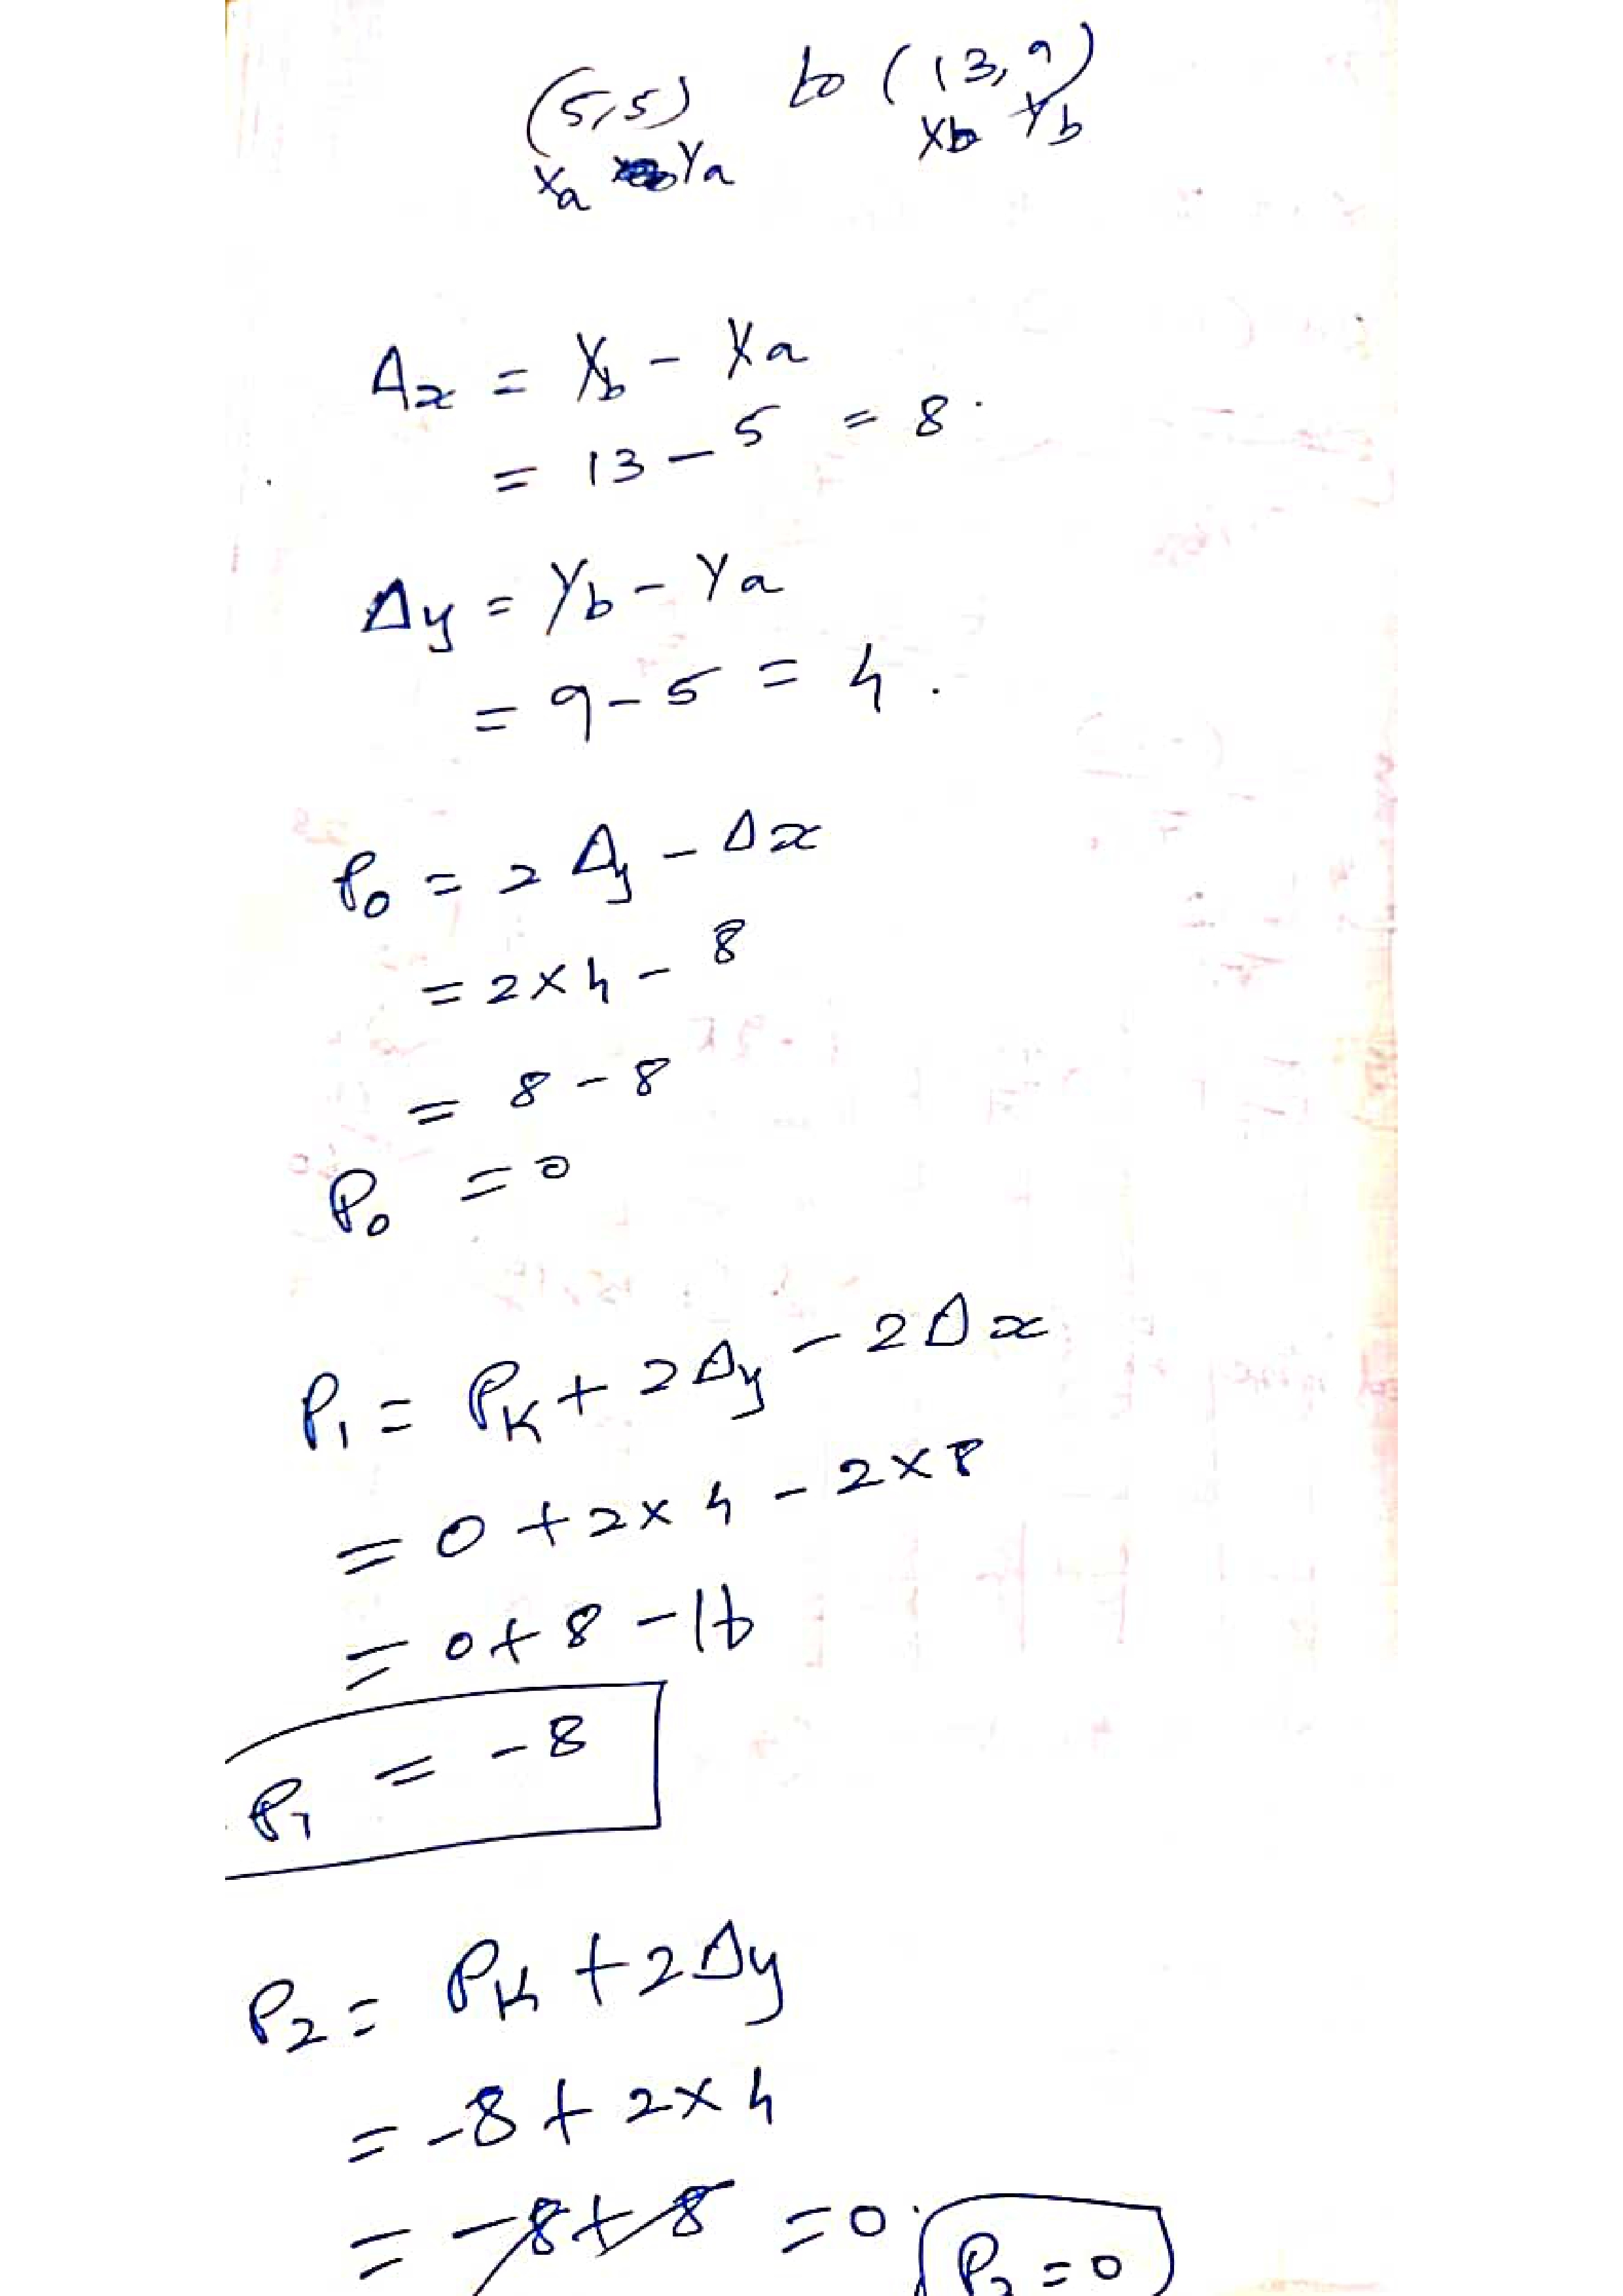 (5,5) to (13,9)
Xa Ya Xb Yb
Δx = Xb - Xa
= 13 - 5 = 8.
Δy = Yb - Ya
= 9 - 5 = 4.
P0 = 2Δy - Δx
= 2x4 - 8
= 8 - 8
P0 = 0
P1 = PK + 2Δy - 2Δx
= 0 + 2x4 - 2x8
= 0 + 8 - 16
P1 = -8
P2 = PK + 2Δy
= -8 + 2x4
= -8 + 8 = 0. P2 = 0